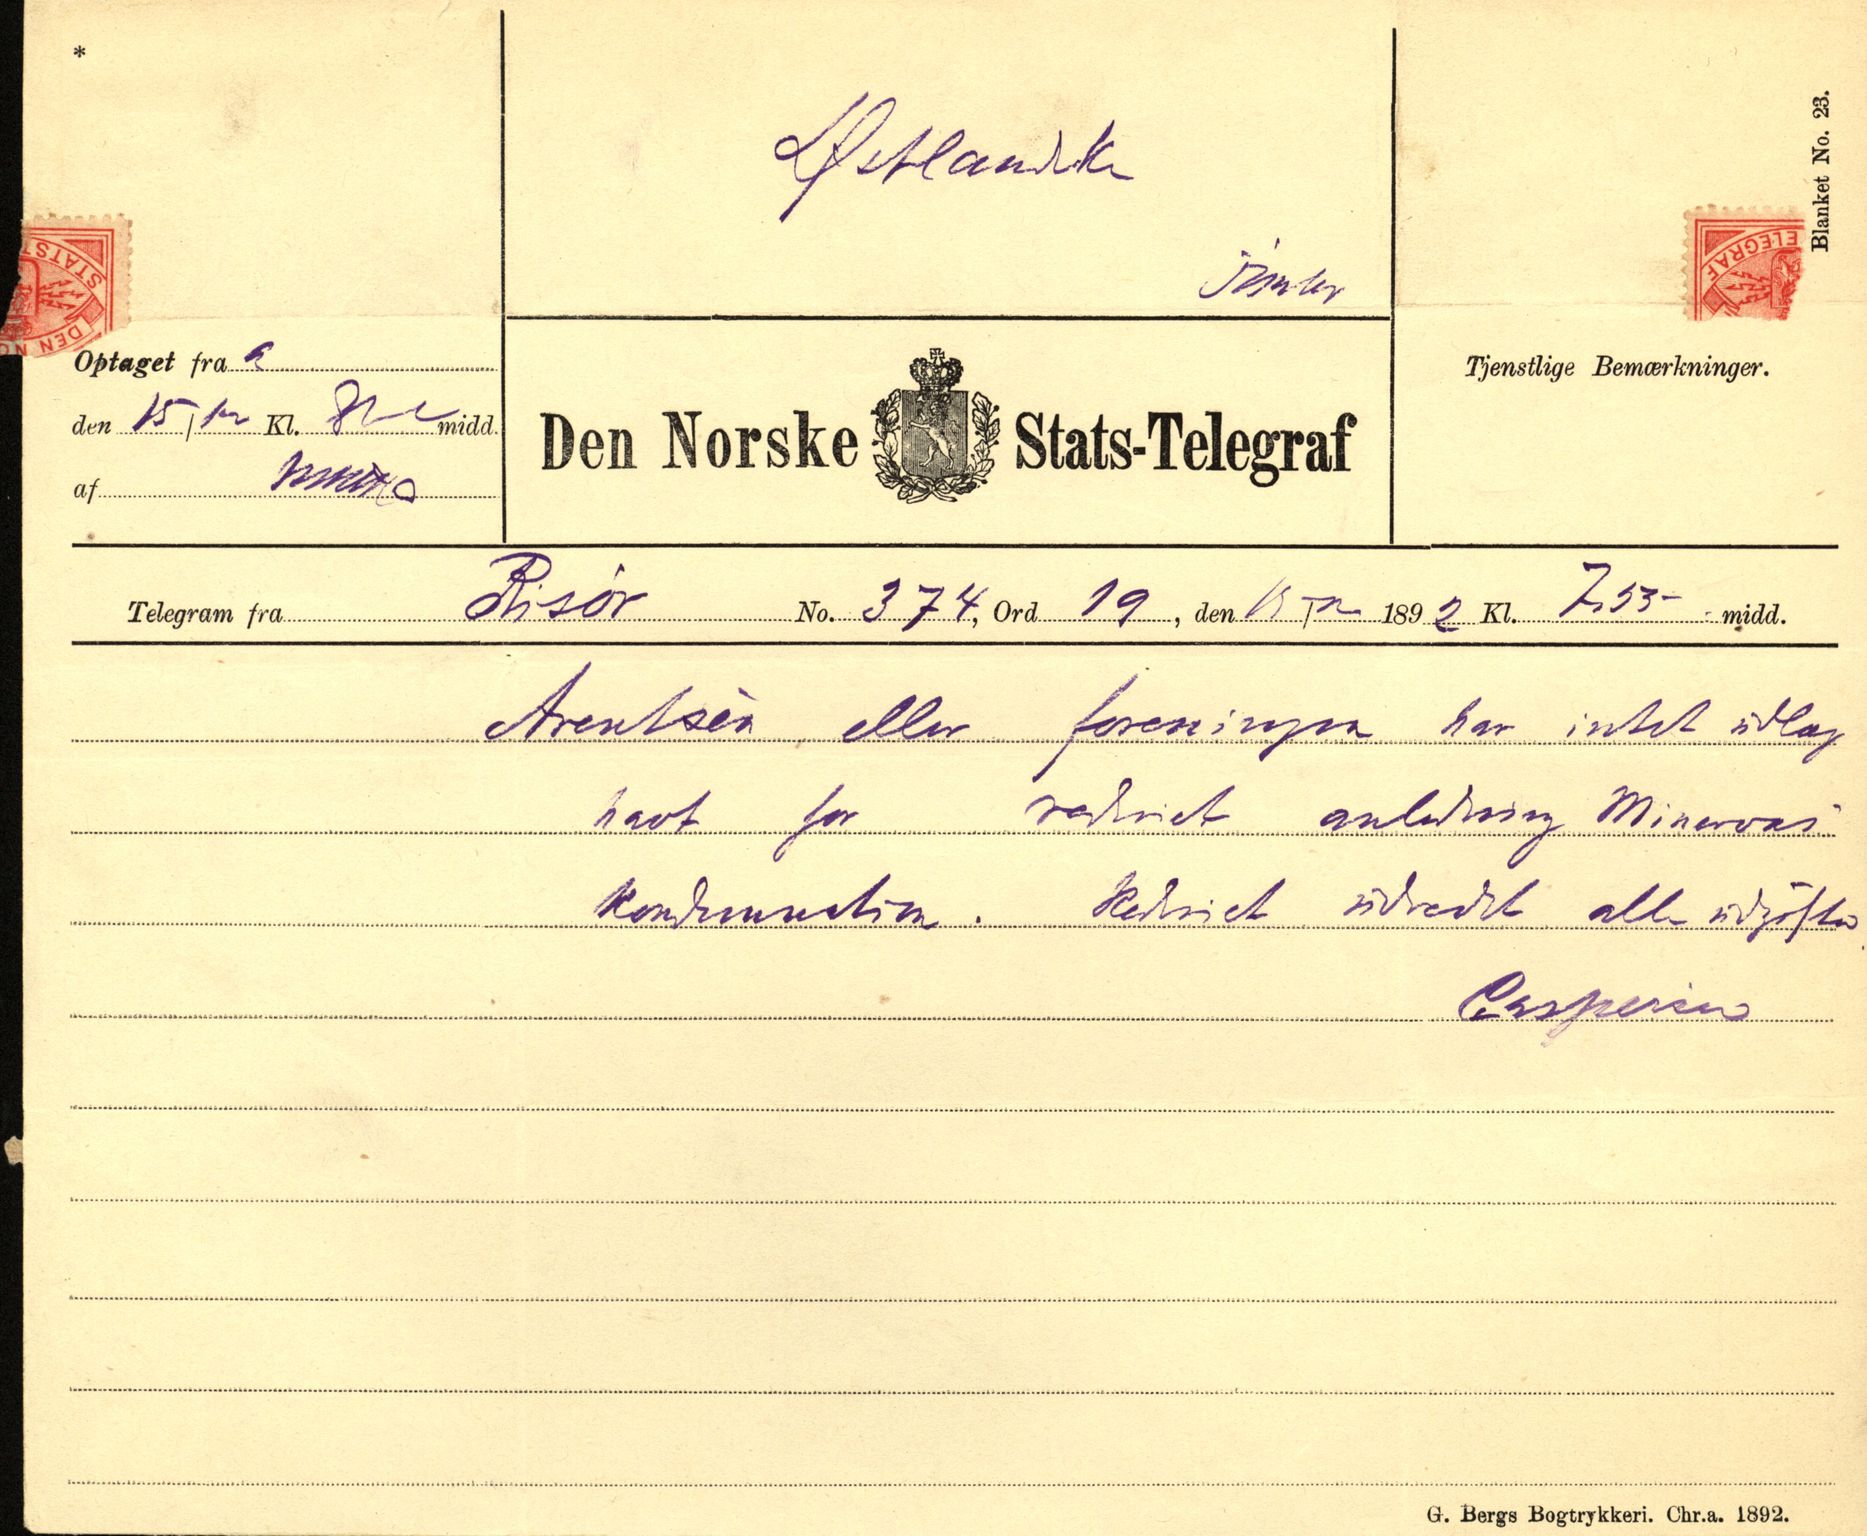 *
Østlandske
Blanket No. 23.
STATST
DEN NO
ELEGRAF
Optaget fra a
den 15/12 Kl. midd.
af
Den Norske Stats-Telegraf
Tjenstlige Bemærkninger.
Telegram fra Risør No. 374, Ord 19, den 15/12 1892 Kl. 7,55 midd.
Arentsen eller foreningen har intet udlæg
havt for rederiet anledning Minervas
kondemnation. Rederiet udredet alle udgifter
Caspersen
G. Bergs Bogtrykkeri. Chr.a. 1892.